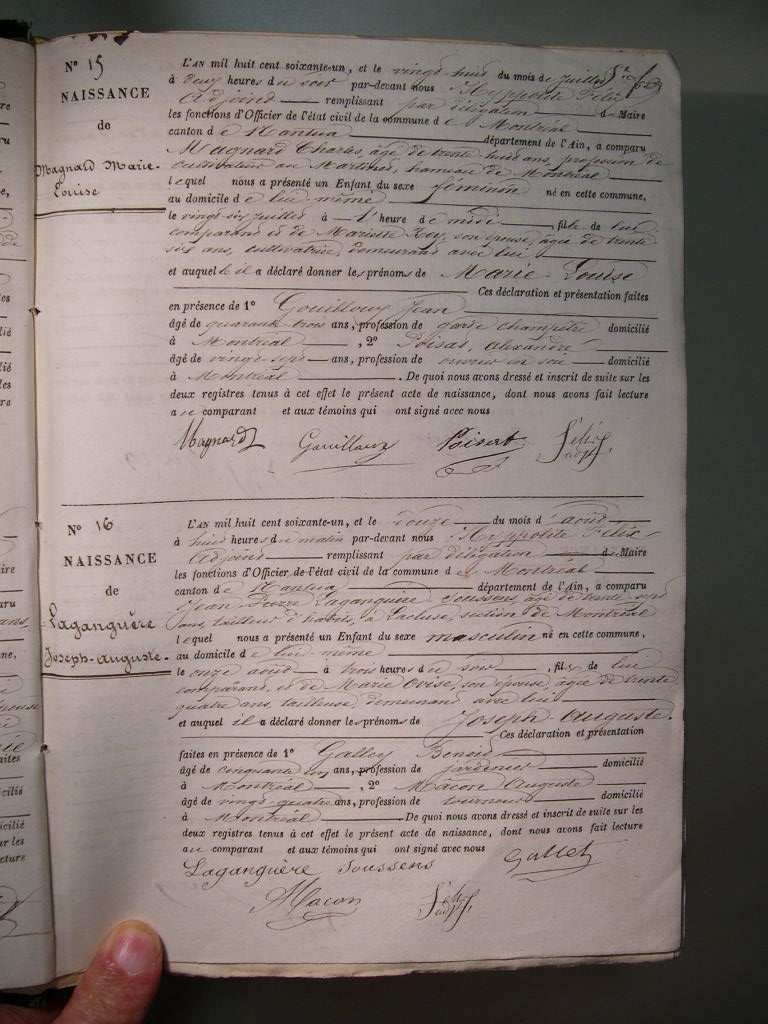 N° 15
NAISSANCE
de
Magnard Marie-
Louise
L'AN mil huit cent soixante-un, et le vingt huit du mois de juillet
à deux heures du soir par-devant nous Hyppolite Félix
Adjoint remplissant par délégation d Maire
les fonctions d'Officier de l'état civil de la commune de Montréal
canton de Nantua département de l'Ain, a comparu
Magnard Charles, âgé de trente huit ans, profession de
cultivateur au Martinet, hameau de Montréal
lequel nous a présenté un Enfant du sexe féminin né en cette commune,
au domicile de lui-même
le vingt six juillet à l'heure de midi, fille de lui
comparant et de Mariette Rey, son épouse, âgée de trente
six ans, cultivatrice, demeurant avec lui
et auquel il a déclaré donner les prénoms de Marie-Louise
Ces déclaration et présentation faites
en présence de 1° Gouilloux Jean
âgé de quarante trois ans, profession de garde champêtre domicilié
à Montréal, 2° Poisat, Alexandre
âgé de vingt sept ans, profession de ouvrier en soie domicilié
à Montréal. De quoi nous avons dressé et inscrit de suite sur les
deux registres tenus à cet effet le présent acte de naissance, dont nous avons fait lecture
au comparant et aux témoins qui ont signé avec nous
Magnard Gouilloux Poisat Félix
adjt
N° 16
NAISSANCE
de
Laganguère
Joseph-Auguste
L'AN mil huit cent soixante-un, et le douze du mois d'août
à huit heures du matin par-devant nous Hyppolite Félix
Adjoint remplissant par délégation d Maire
les fonctions d'Officier de l'état civil de la commune de Montréal
canton de Nantua département de l'Ain, a comparu
Jean Pierre Laganguère Soussens, âgé de trente sept
ans, tailleur d'habits, à Lacluse, section de Montréal
lequel nous a présenté un Enfant du sexe masculin né en cette commune,
au domicile de lui-même
le onze août à trois heures du soir, fils de lui
comparant, et de Marie Ovise, son épouse, âgée de trente
quatre ans, tailleuse, demeurant avec lui
et auquel il a déclaré donner les prénoms de Joseph Auguste.
Ces déclaration et présentation
faites en présence de 1° Gallet Benoit
âgé de cinquante ans, profession de domicilié
à Montréal, 2° Macon Auguste
âgé de vingt quatre ans, profession de tourneur domicilié
à Montréal. De quoi nous avons dressé et inscrit de suite sur les
deux registres tenus à cet effet le présent acte de naissance, dont nous avons fait lecture
au comparant et aux témoins qui ont signé avec nous
Laganguère Soussens Gallet
Macon Félix
adjt